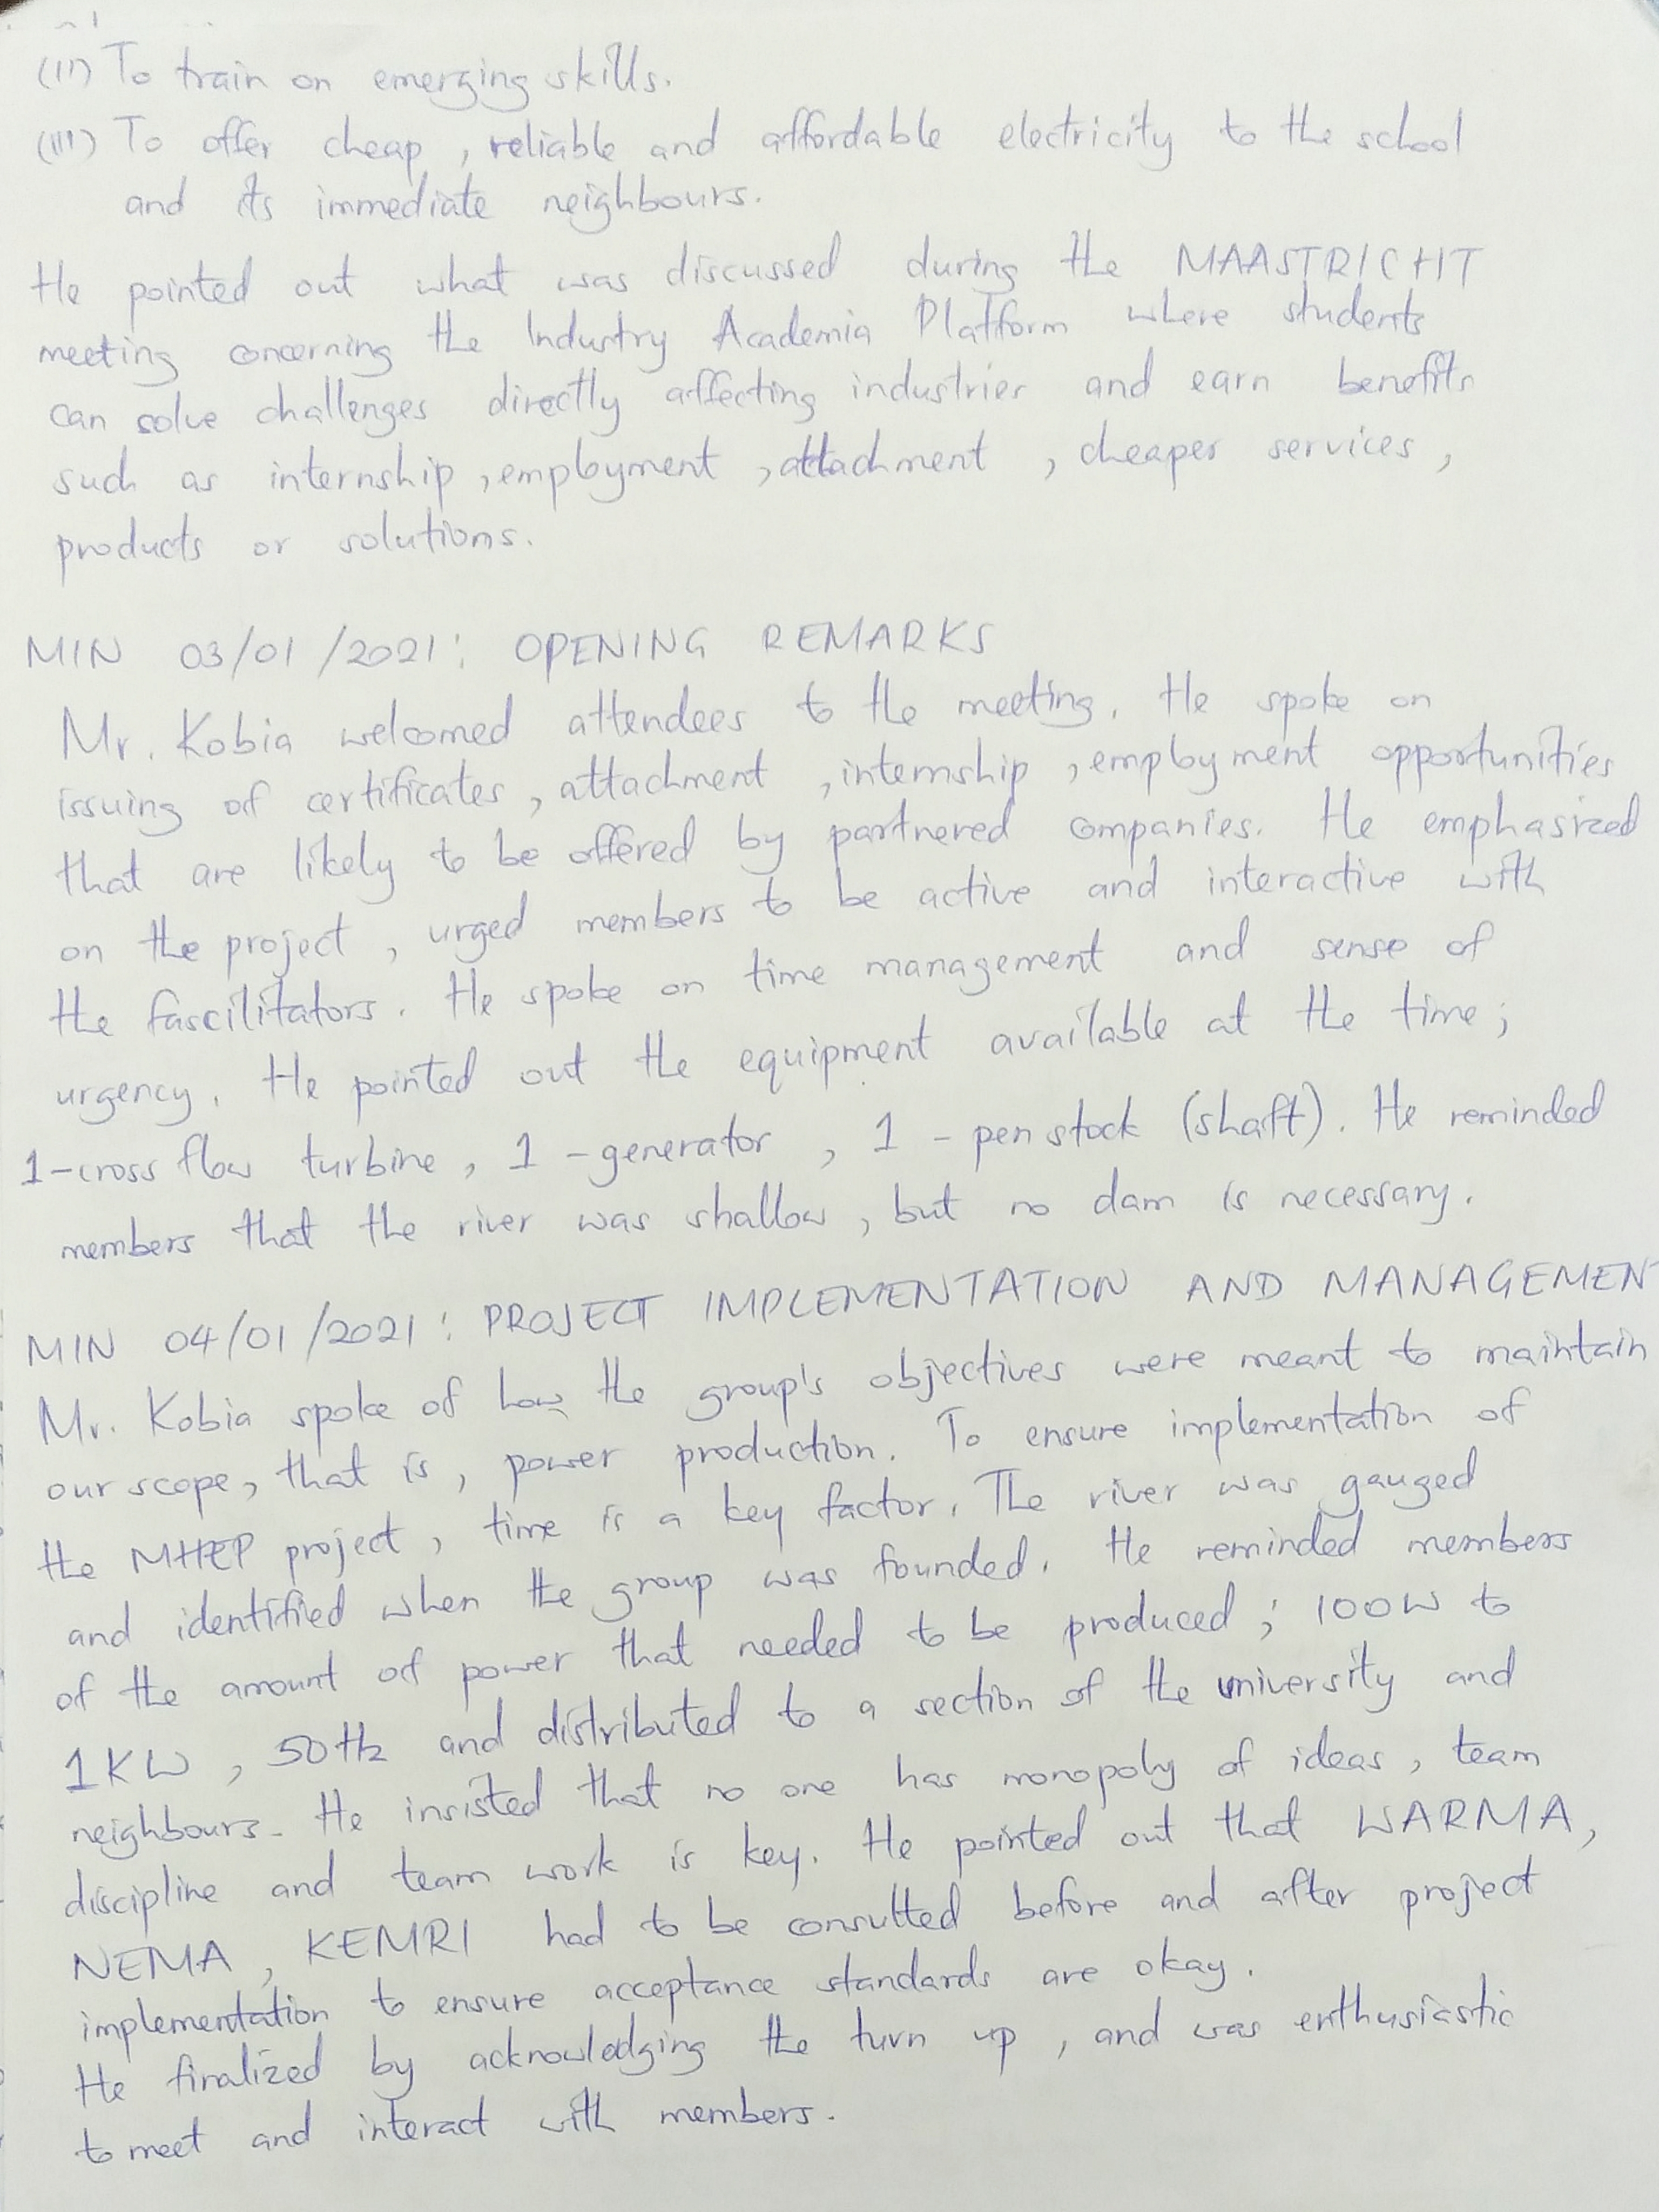 (II) To train on emerging skills.
(III) To offer cheap, reliable and affordable electricity to the school
and its immediate neighbours.
He pointed out what was discussed during the MAASTRICHT
meeting concerning the Industry Academia Platform where students
can solve challenges directly affecting industries and earn benefits
such as internship, employment, attachment, cheaper services,
products or solutions.
MIN 03/01/2021: OPENING REMARKS
Mr. Kobia welcomed attendees to the meeting. He spoke on
issuing of certificates, attachment, internship, employment opportunities
that are likely to be offered by partnered companies. He emphasized
on the project, urged members to be active and interactive with
the fascilitators. He spoke on time management and sense of
urgency. He pointed out the equipment available at the time;
1-cross flow turbine, 1-generator, 1-penstock (shaft). He reminded
members that the river was shallow, but no dam is necessary.
MIN 04/01/2021: PROJECT IMPLEMENTATION AND MANAGEMENT
Mr. Kobia spoke of how the group's objectives were meant to maintain
our scope, that is, power production. To ensure implementation of
the MHEP project, time is a key factor. The river was gauged
and identified when the group was founded. He reminded members
of the amount of power that needed to be produced; 100W to
1KW, 50Hz and distributed to a section of the university and
neighbours. He insisted that no one has monopoly of ideas, team
discipline and team work is key. He pointed out that WARMA,
NEMA, KEMRI had to be consulted before and after project
implementation to ensure acceptance standards are okay.
He finalized by acknowledging the turn up, and was enthusiastic
to meet and interact with members.